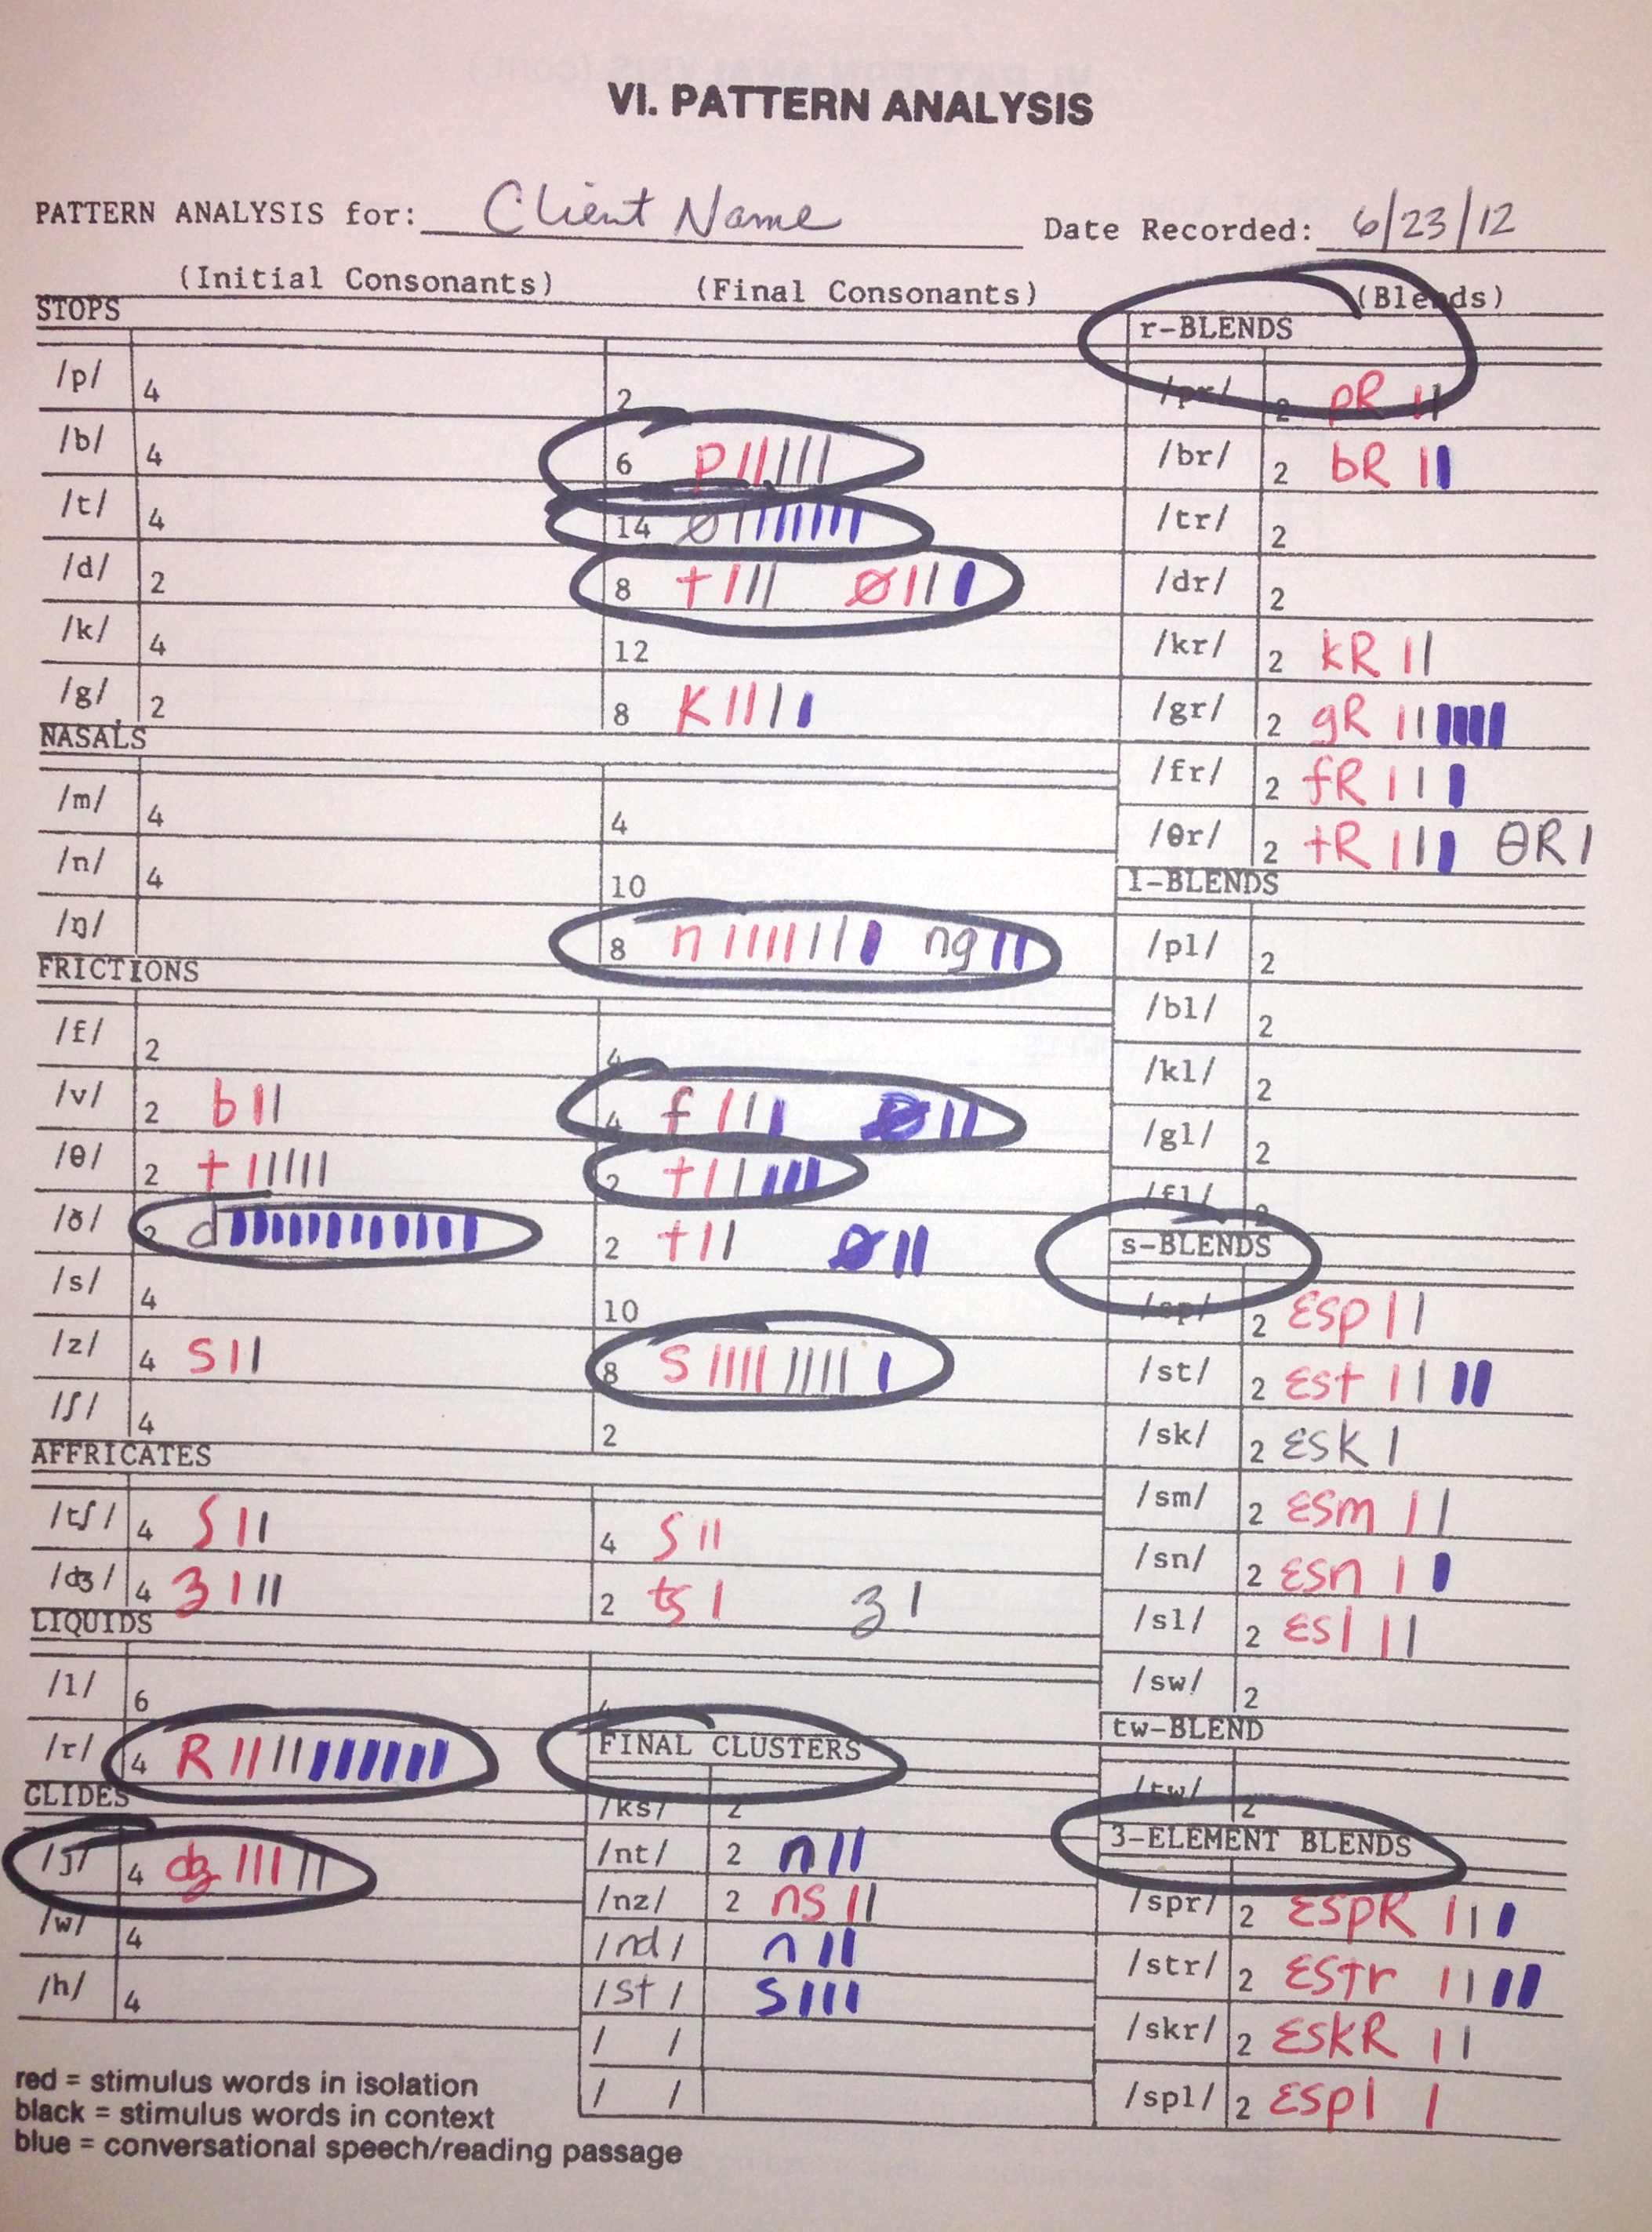 VI. PATTERN ANALYSIS
PATTERN ANALYSIS for: Client Name Date Recorded: 6/23/12
(Initial Consonants) (Final Consonants) (Blends)
STOPS
/p/ 4 2
/b/ 4 6 p
/t/ 4 14 Ø
/d/ 2 8 t Ø
/k/ 4 12
/g/ 2 8 K
NASALS
/m/ 4 4
/n/ 4 10
/ŋ/ 8 n ng
FRICTIONS
/f/ 2 4
/v/ 2 b 4 f Ø
/θ/ 2 t 2 t
/ð/ 2 d 2 t Ø
/s/ 4 10
/z/ 4 s 8 s
/ʃ/ 4 2
AFFRICATES
/tʃ/ 4 ʃ 4 ʃ
/dʒ/ 4 ʒ 2 tʃ ʒ
LIQUIDS
/l/ 6 4
/r/ 4 R
GLIDES
/j/ 4 dʒ
/w/ 4
/h/ 4
FINAL CLUSTERS
/ks/ 2
/nt/ 2 n
/nz/ 2 ns
/nd/ n
/st/ s
/ /
/ /
r-BLENDS
/pr/ 2 pR
/br/ 2 bR
/tr/ 2
/dr/ 2
/kr/ 2 kR
/gr/ 2 gR
/fr/ 2 fR
/θr/ 2 tR θR
l-BLENDS
/pl/ 2
/bl/ 2
/kl/ 2
/gl/ 2
/fl/ 2
s-BLENDS
/sp/ 2 ɛsp
/st/ 2 ɛst
/sk/ 2 ɛsk
/sm/ 2 ɛsm
/sn/ 2 ɛsn
/sl/ 2 ɛsl
/sw/ 2
tw-BLEND
/tw/ 2
3-ELEMENT BLENDS
/spr/ 2 ɛspR
/str/ 2 ɛstr
/skr/ 2 ɛskR
/spl/ 2 ɛspl
red = stimulus words in isolation
black = stimulus words in context
blue = conversational speech/reading passage